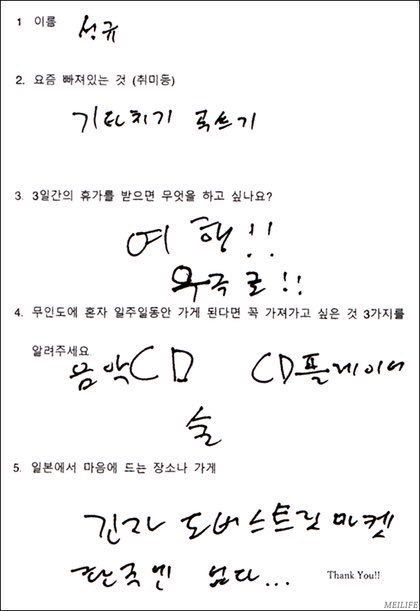 1 이름 성규
2. 요즘 빠져있는 것 (취미등)
기타치기 곡쓰기
3. 3일간의 휴가를 받으면 무엇을 하고 싶나요?
여행!!
외국로!!
4. 무인도에 혼자 일주일동안 가게 된다면 꼭 가져가고 싶은 것 3가지를
알려주세요.
음악CD CD플레이어
술
5. 일본에서 마음에 드는 장소나 가게
긴자 도버스트릿마켓
한국엔 없다...
Thank You!!
MEILIFE